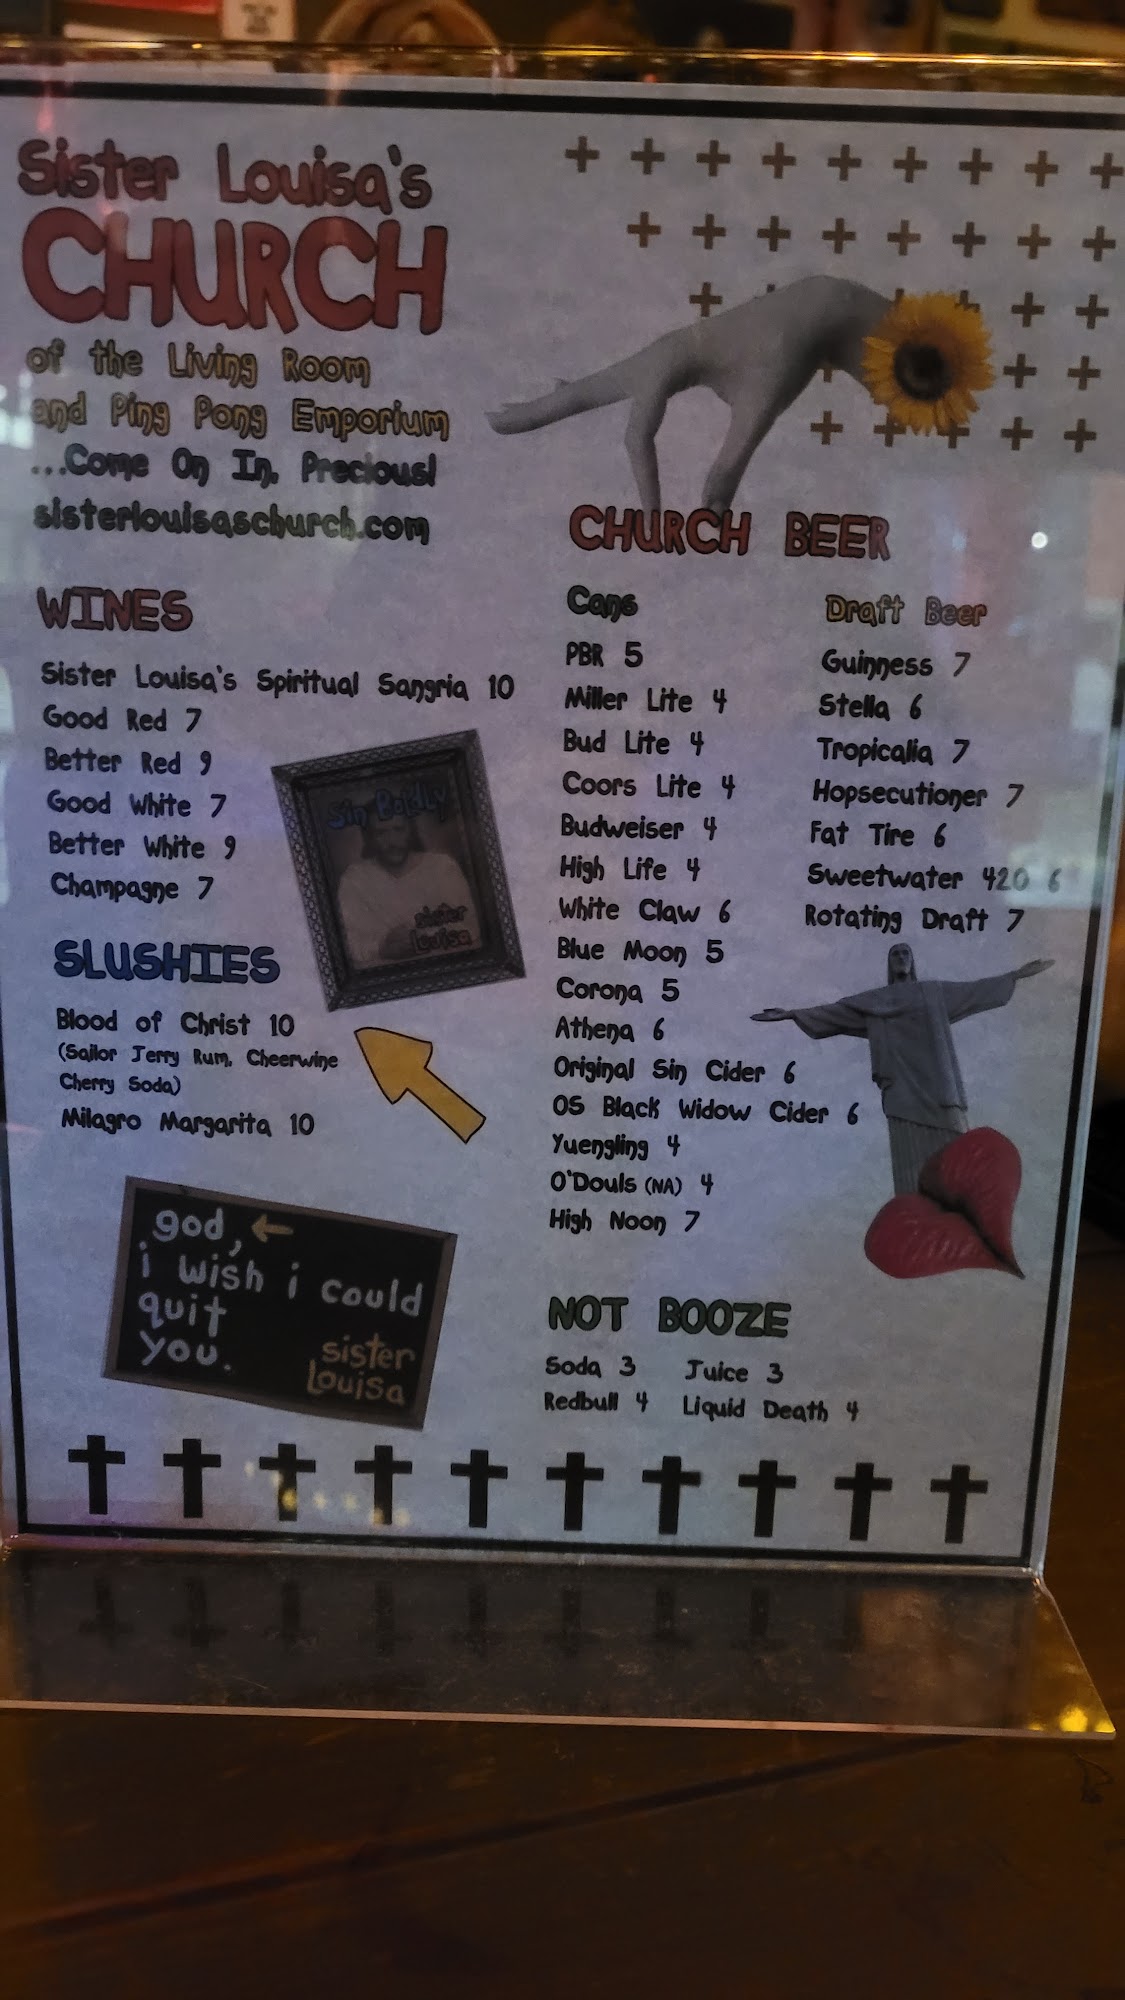 Sister Louisa's
CHURCH
of the Living Room
and Ping Pong Emporium
...Come On In, Precious!
sisterlouisaschurch.com
WINES
Sister Louisa's Spiritual Sangria 10
Good Red 7
Better Red 9
Good White 7
Better White 9
Champagne 7
Sin Boldly
sister
louisa
SLUSHIES
Blood of Christ 10
(Sailor Jerry Rum, Cheerwine
Cherry Soda)
Milagro Margarita 10
god,
i wish i could
quit
you.
sister
louisa
CHURCH BEER
Cans
PBR 5
Miller Lite 4
Bud Lite 4
Coors Lite 4
Budweiser 4
High Life 4
White Claw 6
Blue Moon 5
Corona 5
Athena 6
Original Sin Cider 6
OS Black Widow Cider 6
Yuengling 4
O'Douls (NA) 4
High Noon 7
Draft Beer
Guinness 7
Stella 6
Tropicalia 7
Hopsecutioner 7
Fat Tire 6
Sweetwater 420 6
Rotating Draft 7
NOT BOOZE
Soda 3 Juice 3
Redbull 4 Liquid Death 4